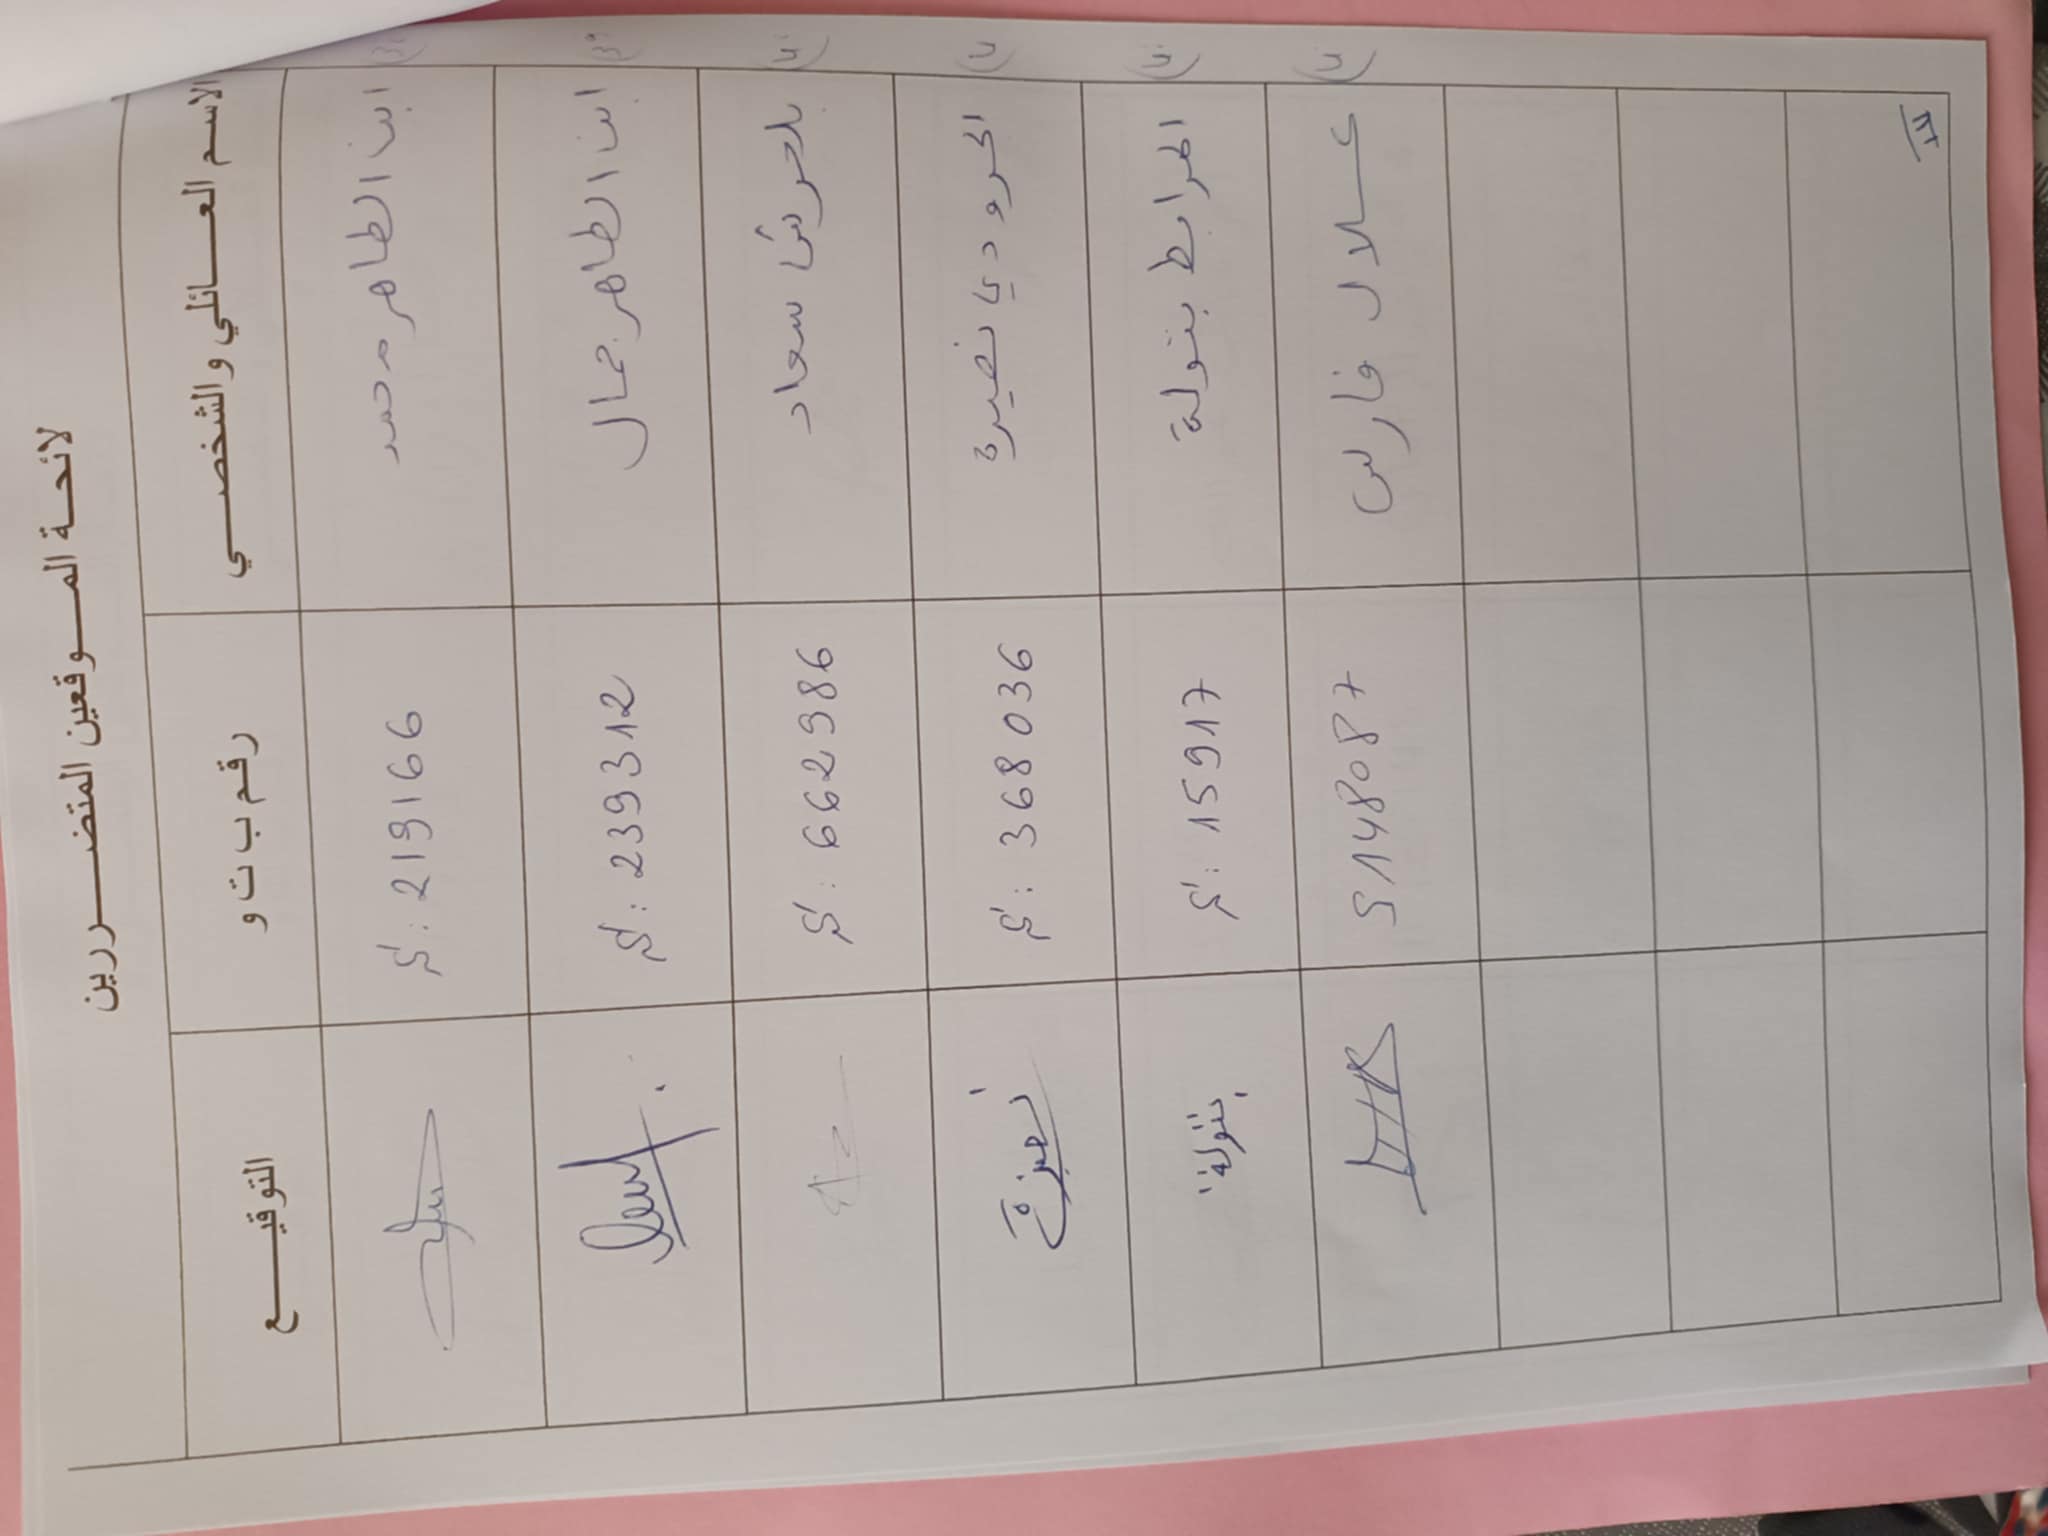 لائحة الموقعين المتضررين
الاسم العائلي والشخصي رقم ب ت و التوقيع
ابن الطاهر محمد 219166
ابن الطاهر جمال 239312
بلحرش سعاد 662986
نصيرة 368036
المرابط بتولة 15917 بتولة
علال فارس S148087